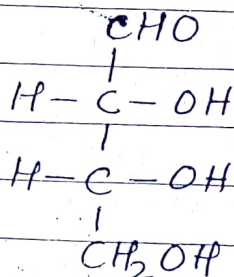 CHO
H - C - OH
H - C - OH
CH₂OH